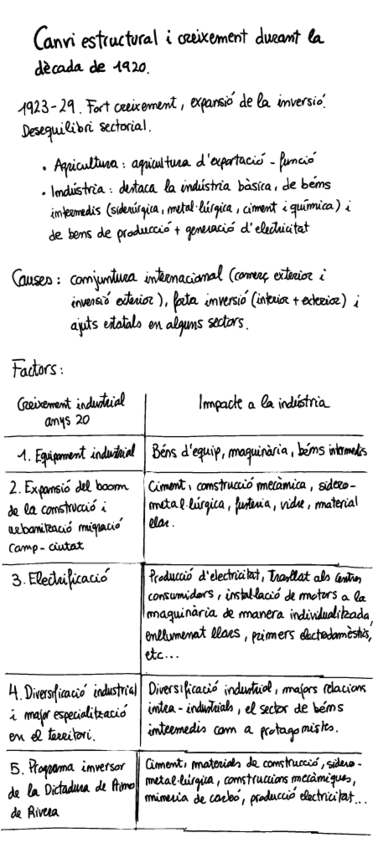 Canvi estructural i creixement durant la
dècada de 1920.
1923-29. Fort creixement, expansió de la inversió.
Desequilibri sectorial.
• Agricultura: agricultura d'exportació - funció
• Indústria: destaca la indústria bàsica, de béns
intermedis (siderúrgica, metal·lúrgica, ciment i química) i
de bens de producció + generació d'electricitat
Causes: conjuntura internacional (comerç exterior i
inversió exterior), forta inversió (interior + exterior) i
ajuts estatals en alguns sectors.
Factors:
Creixement industrial
anys 20
Impacte a la indústria
1. Equipament industrial
Béns d'equip, maquinària, béns intermedis
2. Expansió del boom
de la construcció i
urbanització migració
camp-ciutat
Ciment, construcció mecànica, sidero-
metal·lúrgica, fusteria, vidre, material
elec.
3. Electrificació
Producció d'electricitat, Trasllat als centres
consumidors, instal·lació de motors a la
maquinària de manera individualitzada,
enllumenat llars, primers electrodomèstics,
etc...
4. Diversificació industrial
i major especialització
en el territori.
Diversificació industrial, majors relacions
intra-industrials, el sector de béns
intermedis com a protagonistes.
5. Programa inversor
de la Dictadura de Primo
de Rivera
Ciment, materials de construcció, sidero-
metal·lúrgica, construccions mecàniques,
mineria de carbó, producció electricitat...